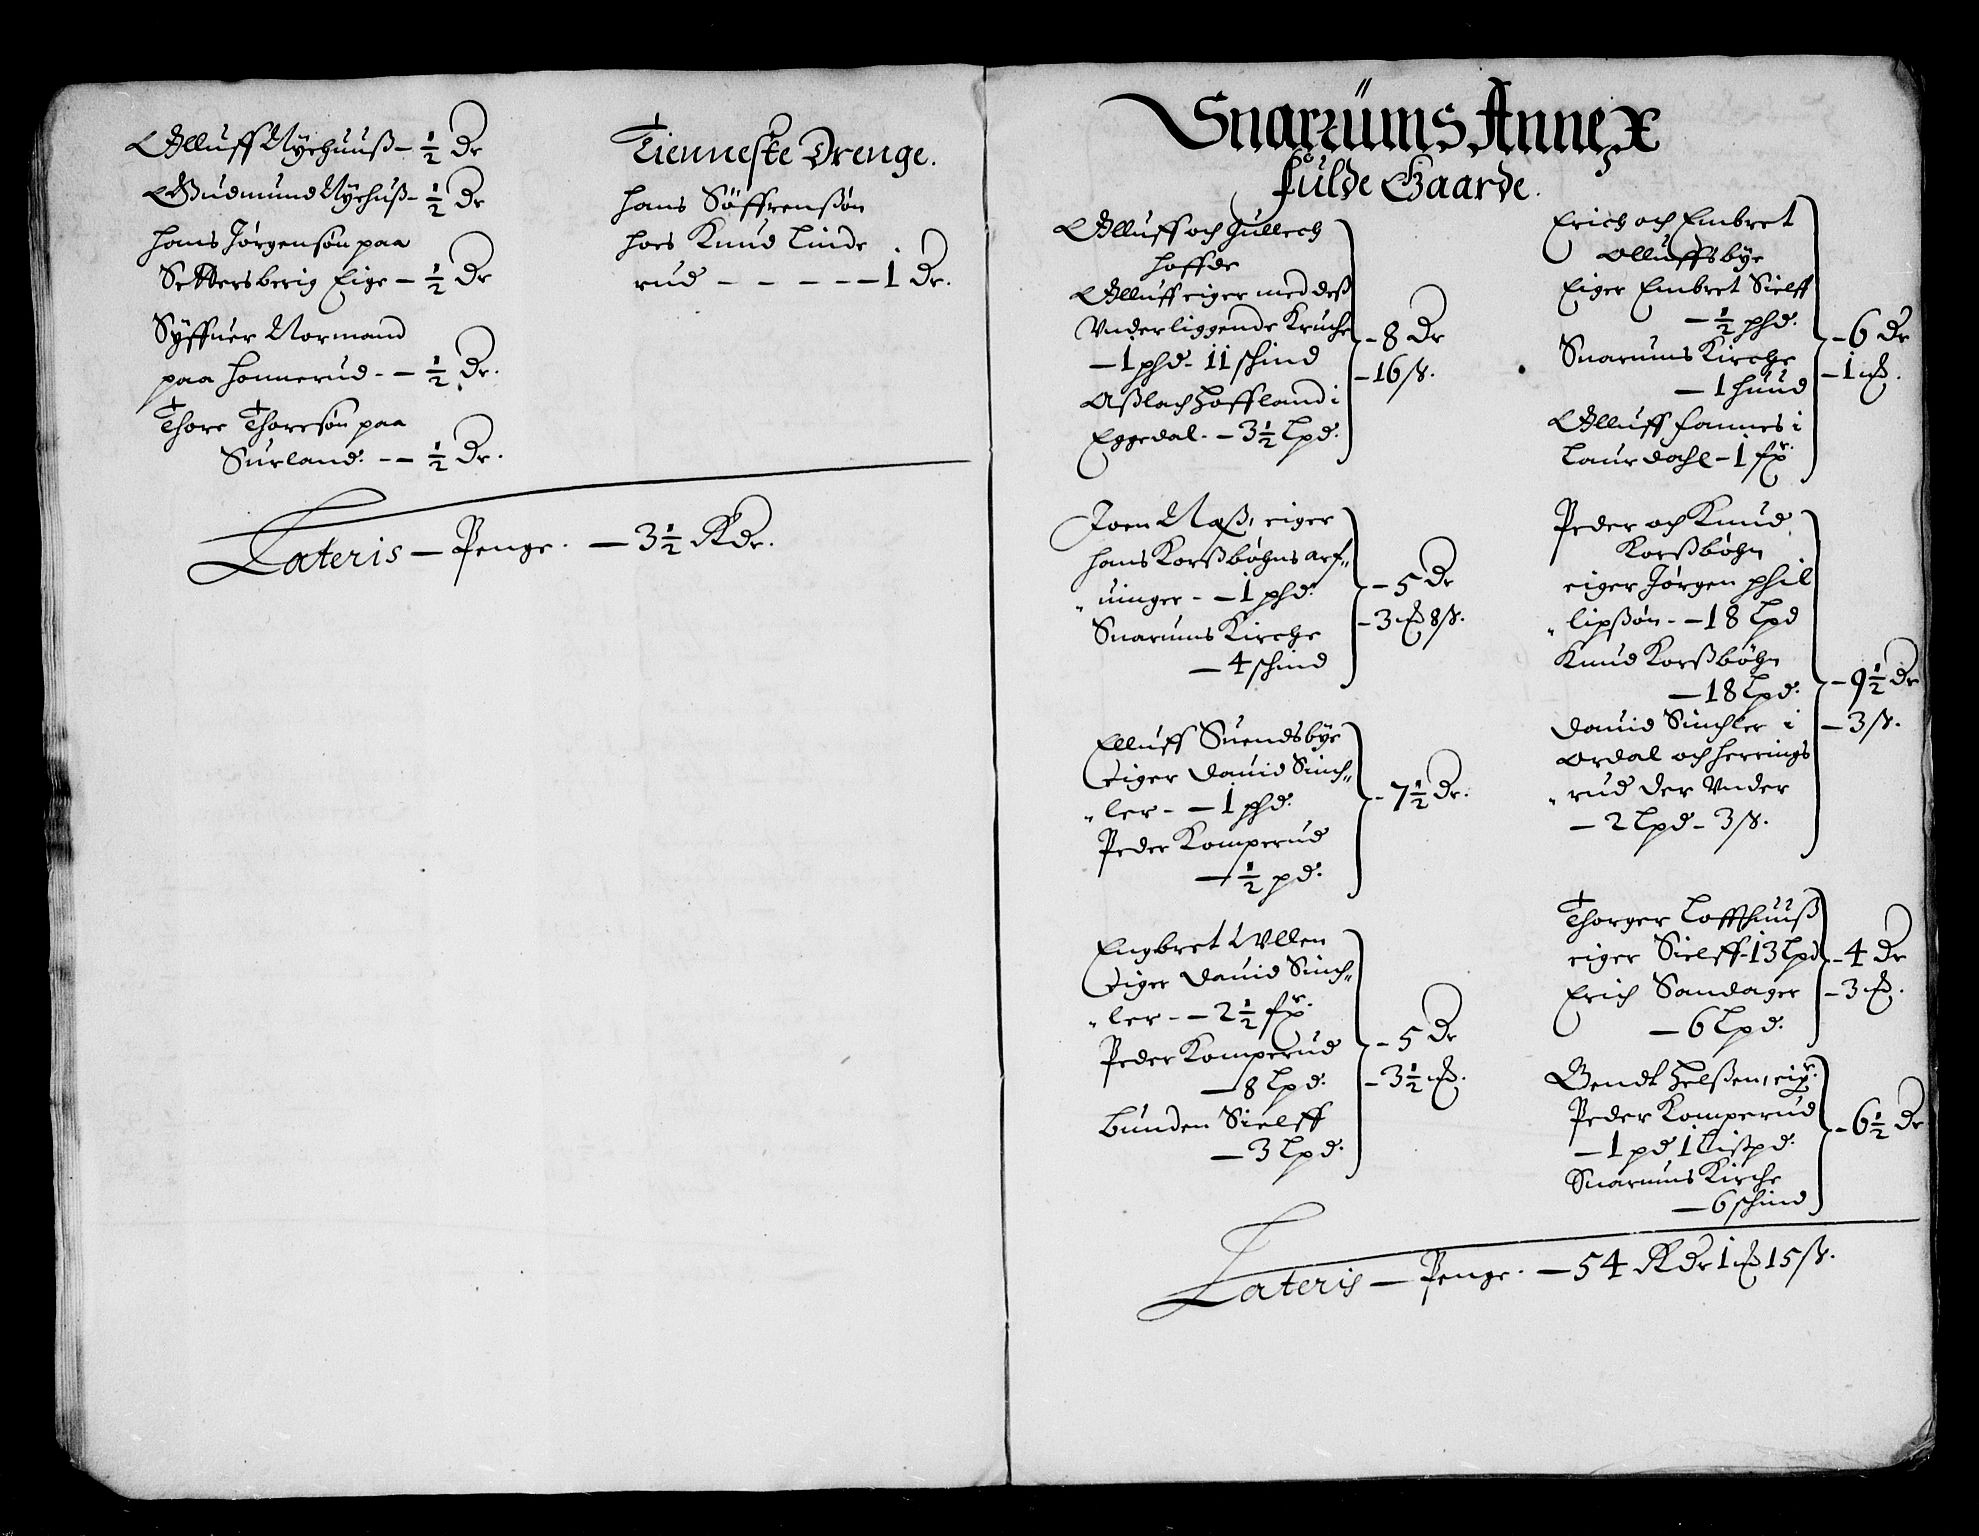 Olluff Nyehuuß – ½ Dr
Gudmund Nyehuß – ½ Dr
Hans Jørgensøn paa
Settersberig Eige – ½ Dr
Syffuer Normand
paa Honnerud – – ½ Dr.
Thore Thoresøn paa
Surland. – – ½ Dr.
Tienneste Drenge.
Hans Söffrensøn
hoes Knud Linde
rud – – – – – 1 Dr.
Lateris – Penge. – 3½ Rdr.
Snarrüms Annex
fulde Gaarde.
Olluff och Gullech
Hoffde
Olluff eiger med deß
Vnderliggende Kruche
– 1 phd. 11 schind
Aßlach Hoffland i
Eggedal. – 3½ Lpd.
– 8 Dr
– 16 ß.
Joen Næß, eiger
Hans Korßbøhns arf„
„uinger – – 1 phd.
Snarums Kirche
– 4 schind
– 5 Dr
– 3 mk 8 ß.
Elluff Suendsbye
Eiger Dauid Sinch„
„ler – – 1 phd.
Peder Komperud
– ½ pd.
– 7½ Dr.
Engbret Ullen
Eiger Dauid Sinch„
„ler – – 2½ fr.
Peder Komperud
– 8 Lpd.
Bunden Sielff
– 3 Lpd.
– 5 Dr
– 3½ mk.
Erich och Embret
Olluffsbye
Eiger Embret Sielff
– ½ phd.
Snarums Kirche
– 1 huud
Olluff Fannes i
Laurdahl – 1 fr.
– 6 Dr
– 1 mk.
Peder och Knud
Korßbøhn
eiger Jørgen Phil
„lipßøn – – 18 Lpd
Knud Korßbøhn
– 18 Lpd.
Dauid Sinchler i
Ordal och Herrings
„rud der Vnder
– 2 Lpd – 3 ß.
– 9½ Dr
– 3 ß.
Thorger Loffthuuß
eiger Sielff – 13 Lpd
Erich Sandager
– 6 Lpd.
– 4 Dr
– 3 mk.
Bendt Helßen, eigr.
Peder Komperud
– 1 pd 1 Lißpd.
Snarums Kirche
– 6 schind
– 6½ Dr
Lateris – Penge. – 54 Rdr 1 mk 15 ß.